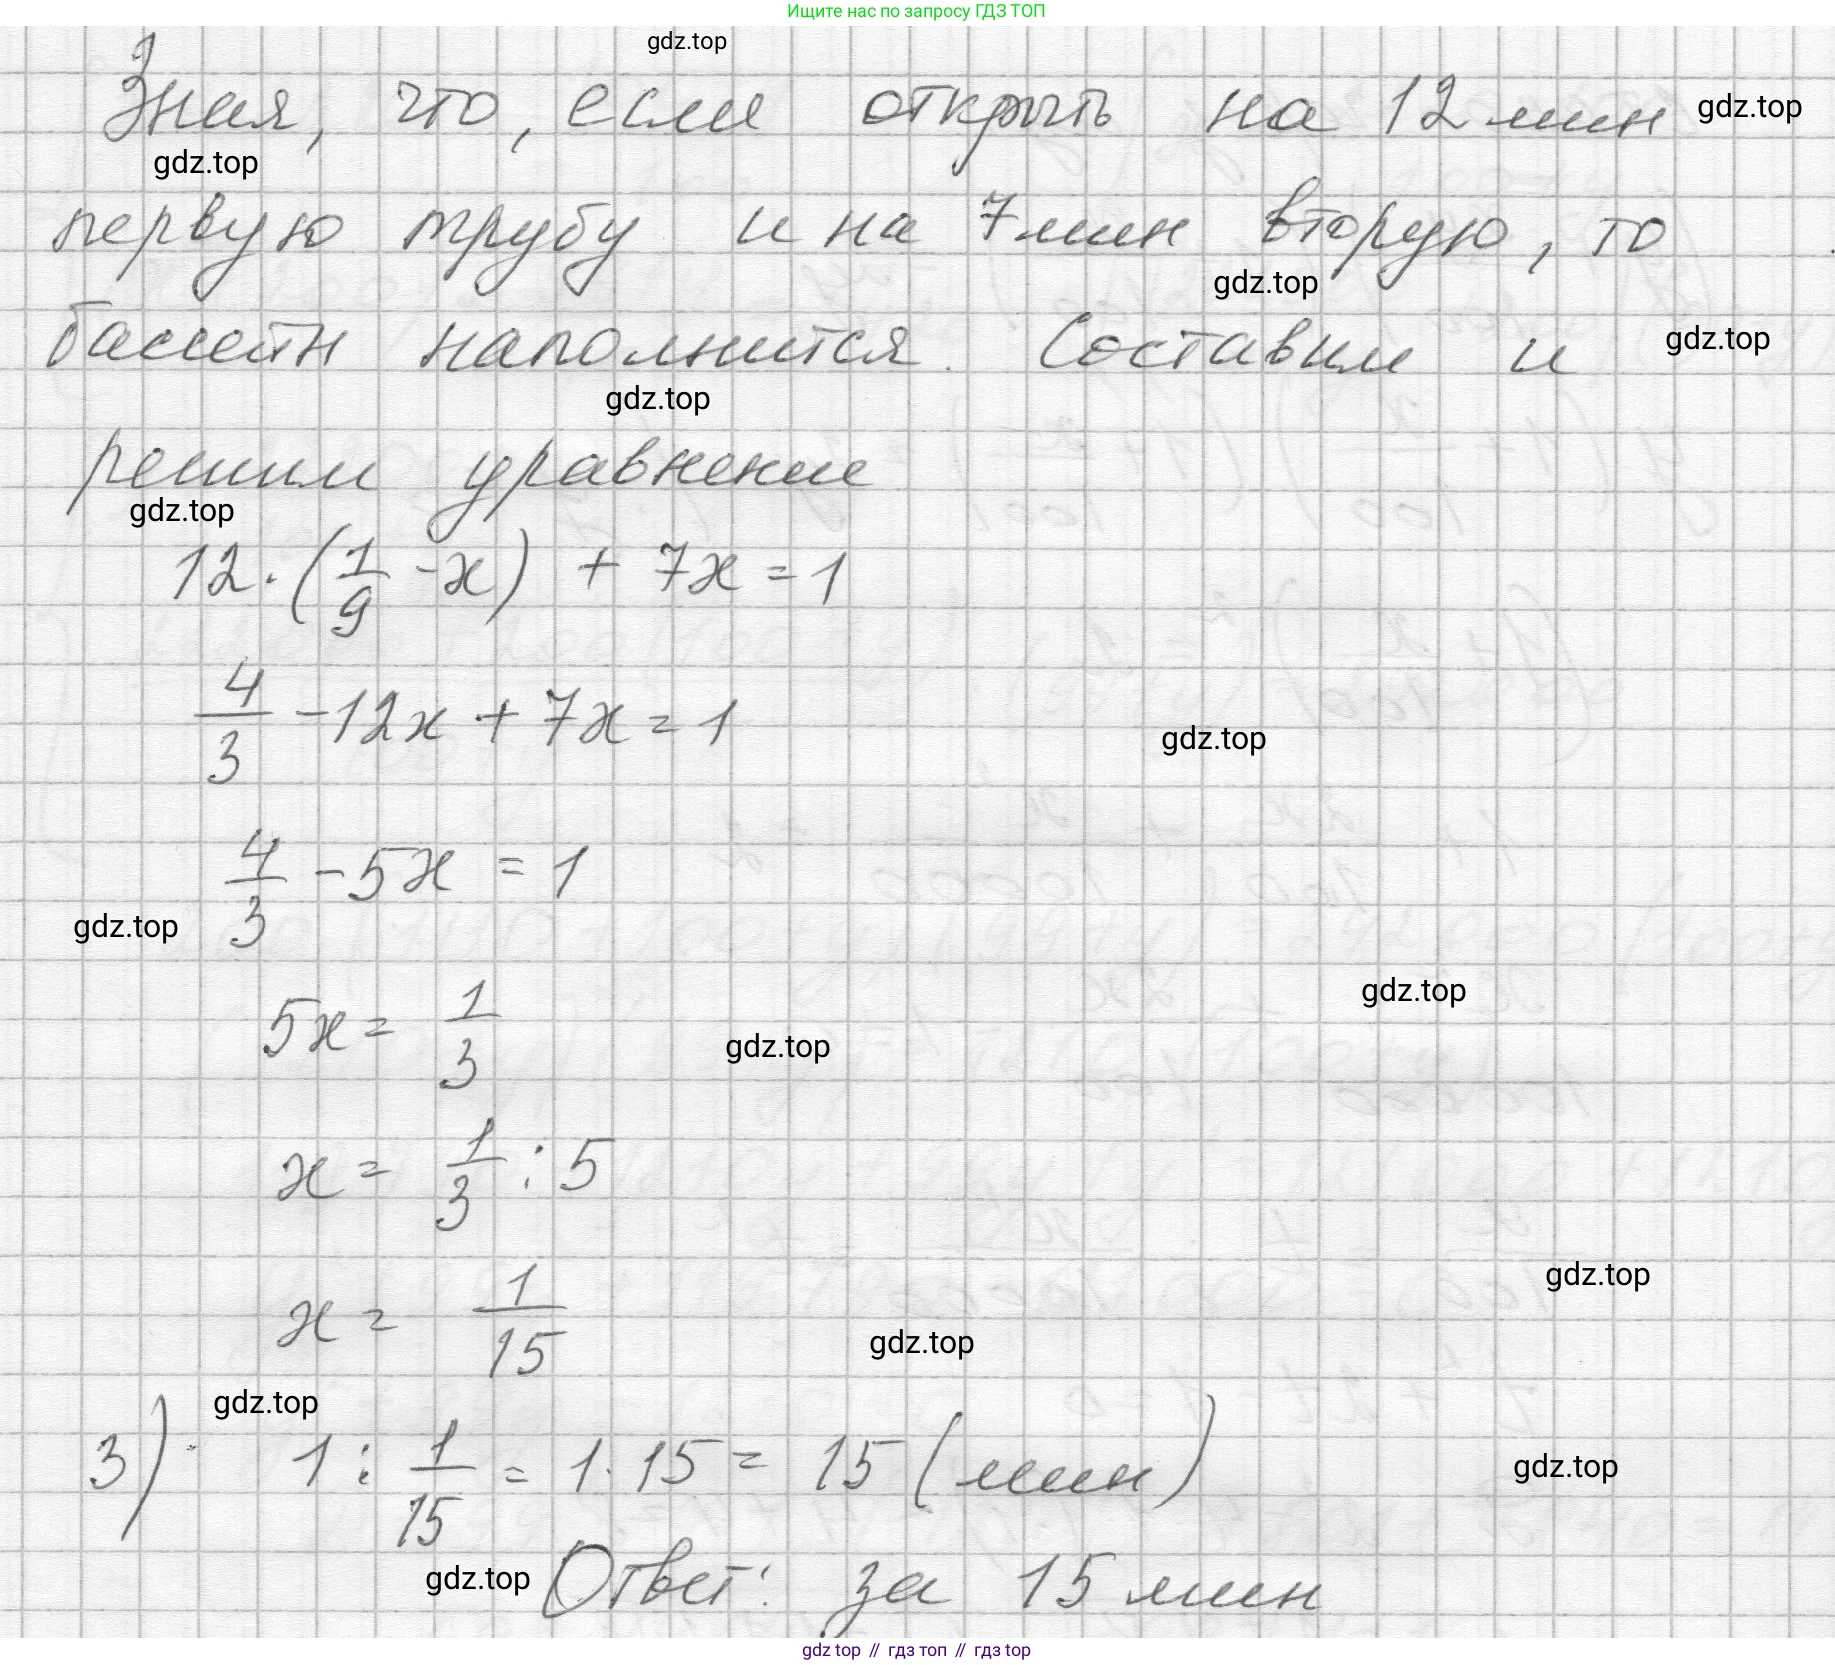 Ищите нас по запросу ГДЗ ТОП
gdz.top
Зная, что, если открыть на 12 мин
gdz.top
gdz.top
первую трубу и на 7 мин вторую, то
gdz.top
бассейн наполнится. Составим и
gdz.top
gdz.top
решим уравнение
gdz.top
12·(1/9 - x) + 7x = 1
4/3 - 12x + 7x = 1
gdz.top
4/3 - 5x = 1
gdz.top
gdz.top
5x = 1/3
gdz.top
x = 1/3 : 5
gdz.top
x = 1/15
gdz.top
gdz.top
3) 1 : 1/15 = 1·15 = 15 (мин)
gdz.top
gdz.top
Ответ: за 15 мин
gdz top // гдз топ // gdz top